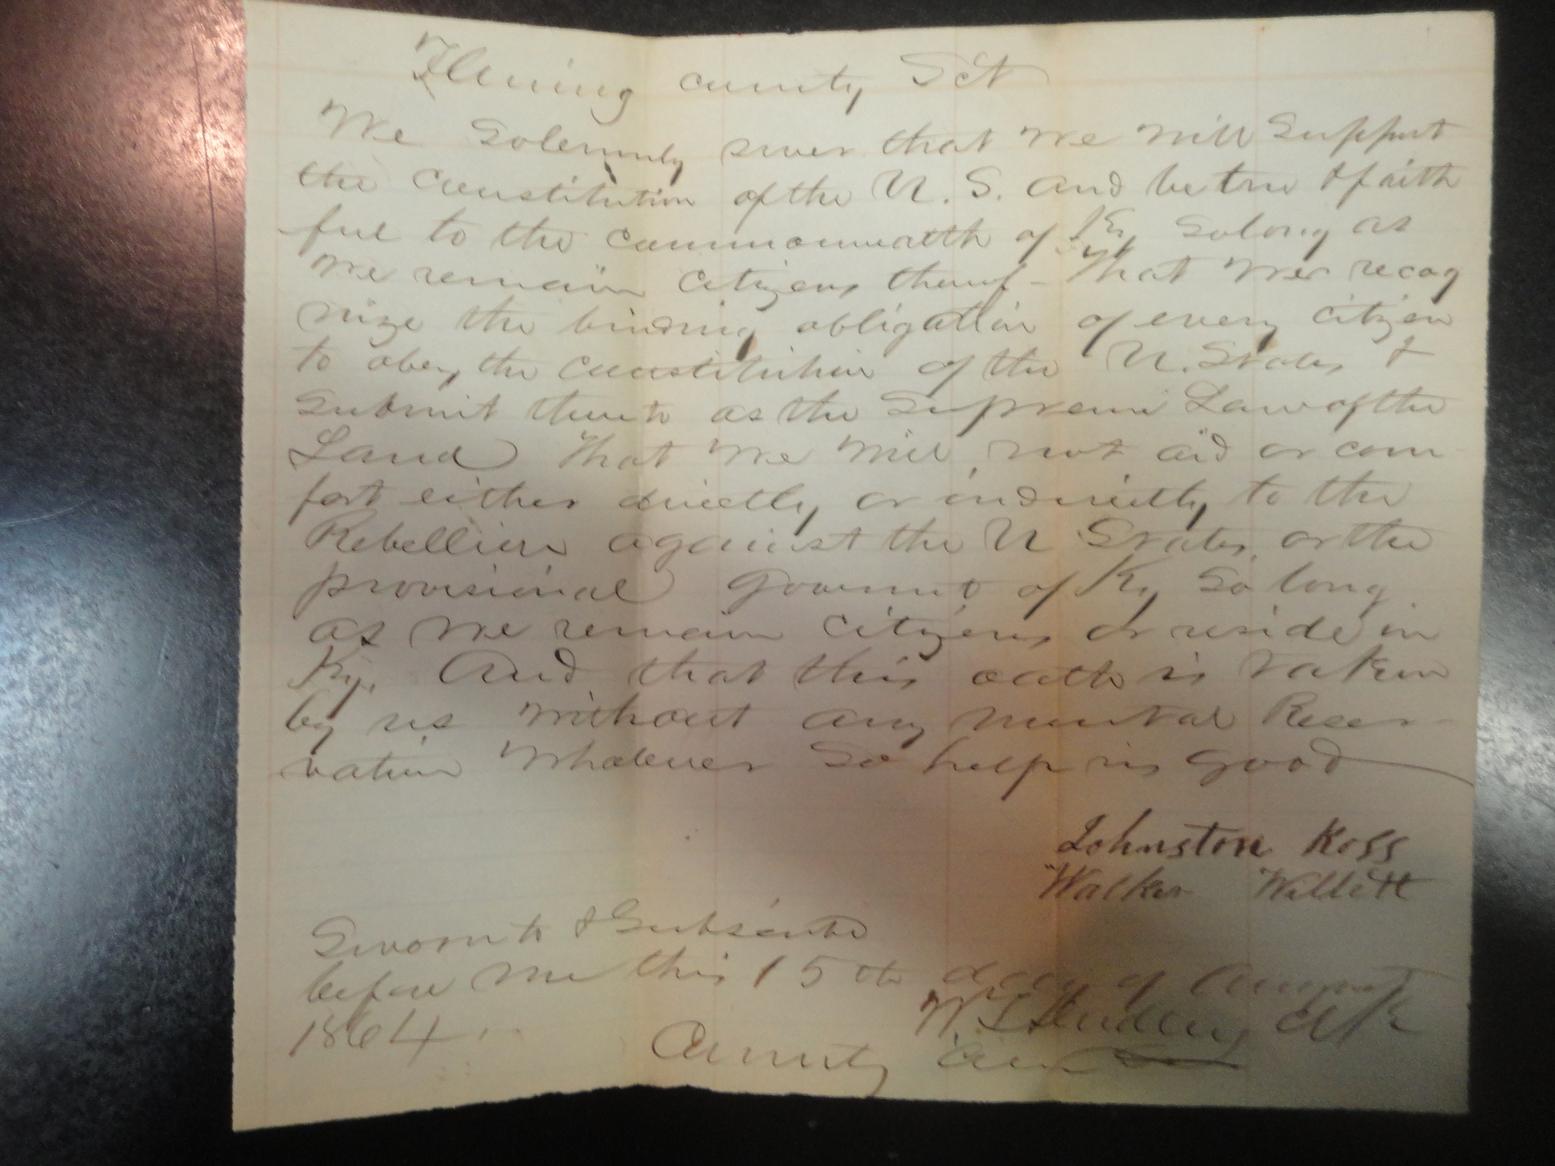 Fleming county Sct
We Solemnly swer that we will Support
the Constitution of the U. S. and be true & faith
ful to the commonwealth of Ky Solong as
we remain Citizens thereof - That we recog
nize the binding obligation of every Citizen
to obey the Constitution of the U. States &
Submit thereto as the Supreme Law of the
Land That we will not aid or com-
fort either directly or indirectly to the
Rebellion against the U States or the
provisional Govermt of Ky So long
as we remain Citizens or reside in
Ky. And that this oath is taken
by us without any mental Reser-
vation Whatever So help us Good
Johnston Ross
Walker Willett
Sworn to & Subscribed
before me this 15th day of August
1864. W. S. Clk
County Court